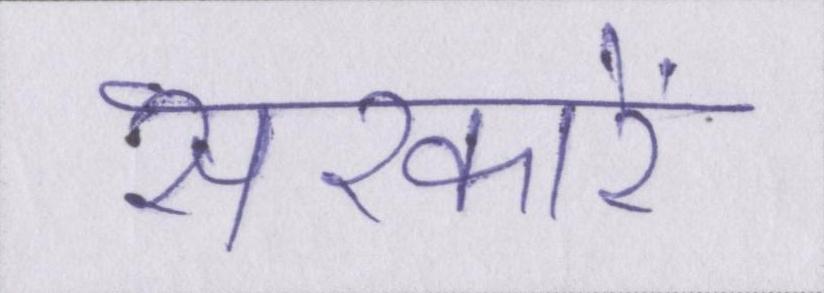 सरकारें